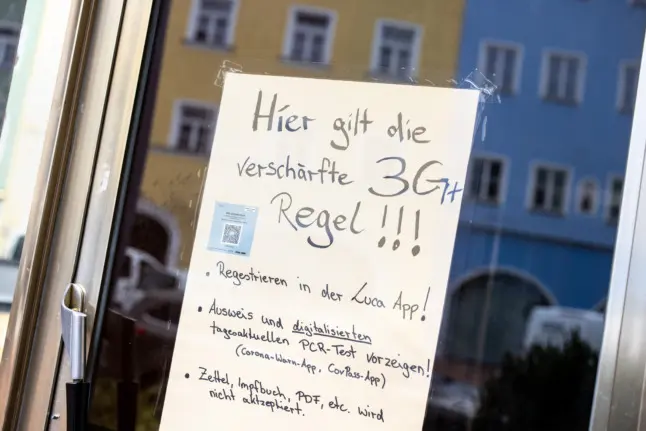 Hier gilt die
verschärfte 3G++
Regel!!!
• Regestrieren in der Luca App!
• Ausweis und digitalisierten
tagesaktuellen PCR-Test vorzeigen!
(Corona-Warn-App, CovPass-App)
• Zettel, Impfbuch, PDF, etc. wird
nicht aktzeptiert.